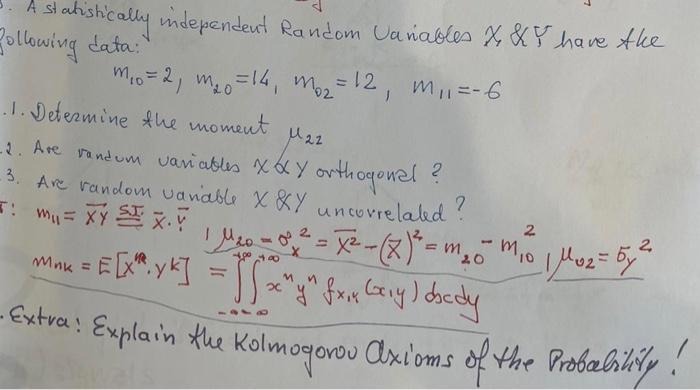 . A statistically independent Random Variables X, & Y have the
following data:
m₁₀ = 2, m₂₀ = 14, m₀₂ = 12, m₁₁ = -6
.1. Determine the moment μ₂₂
.2. Are random variables X & Y orthogonal ?
3. Are random variable X & Y uncorrelated ?
: m₁₁ = \overline{XY} \overset{SI}{=} \bar{X}·\bar{Y}, μ₂₀ = σₓ² = \overline{X²} - (\bar{X})² = m₂₀ - m₁₀², μ₀₂ = σᵧ²
m_{nk} = E[Xⁿ·Yᵏ] = ∫_{-∞}^{+∞}∫_{-∞}^{+∞} xⁿyⁿ f_{X,Y}(x,y) dxdy
. Extra: Explain the Kolmogorov Axioms of the Probability!